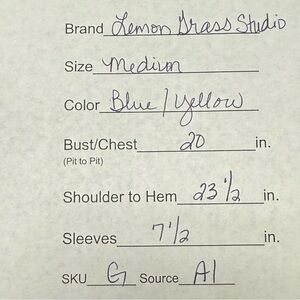 Brand Lemon Grass Studio
Size Medium
Color Blue / Yellow
Bust/Chest 20 in.
(Pit to Pit)
Shoulder to Hem 23 1/2 in.
Sleeves 7 1/2 in.
SKU G Source A1